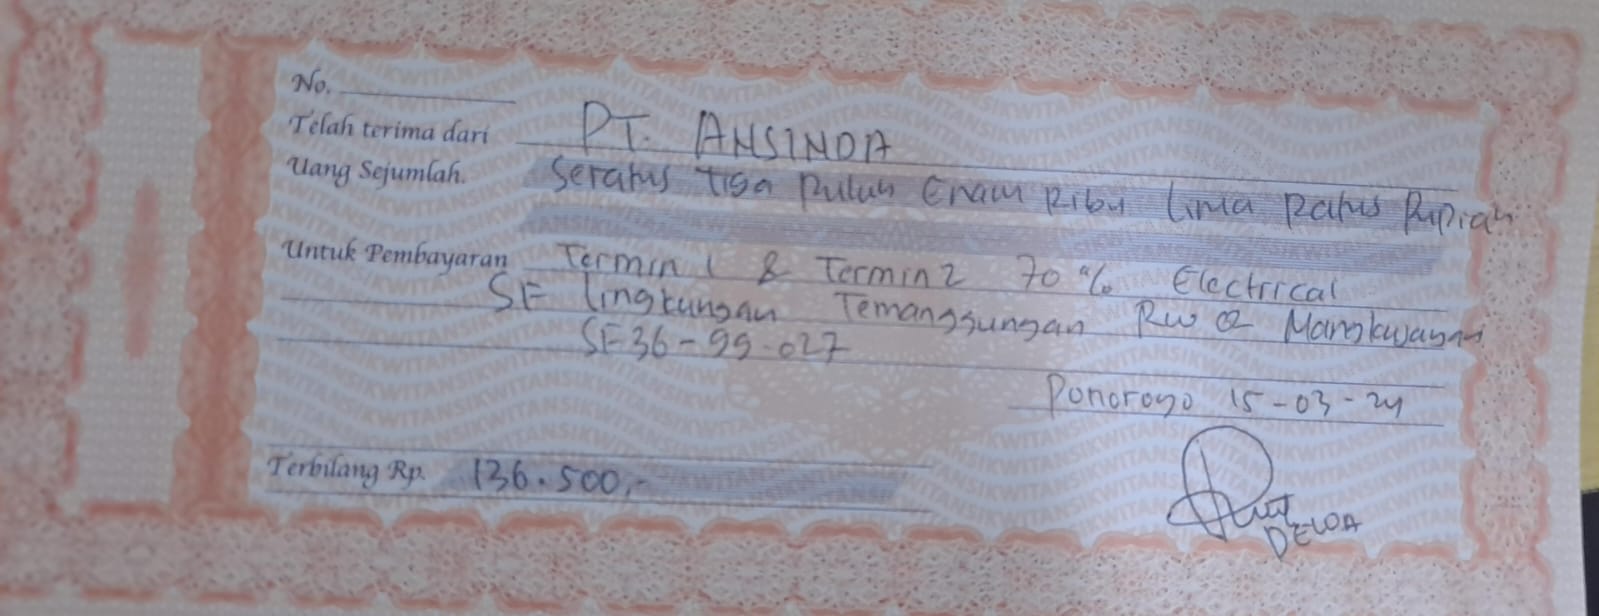 No.
Telah terima dari PT. ANSINDA
Uang Sejumlah. Seratus Tiga Puluh Enam Ribu Lima Ratus Rupiah
Untuk Pembayaran Termin 1 & Termin 2 70% Electrical
SF Lingkungan Temanggungan RW 02 Mangkujayan
SF36-99-027
Ponorogo 15-03-24
Terbilang Rp. 136.500,-